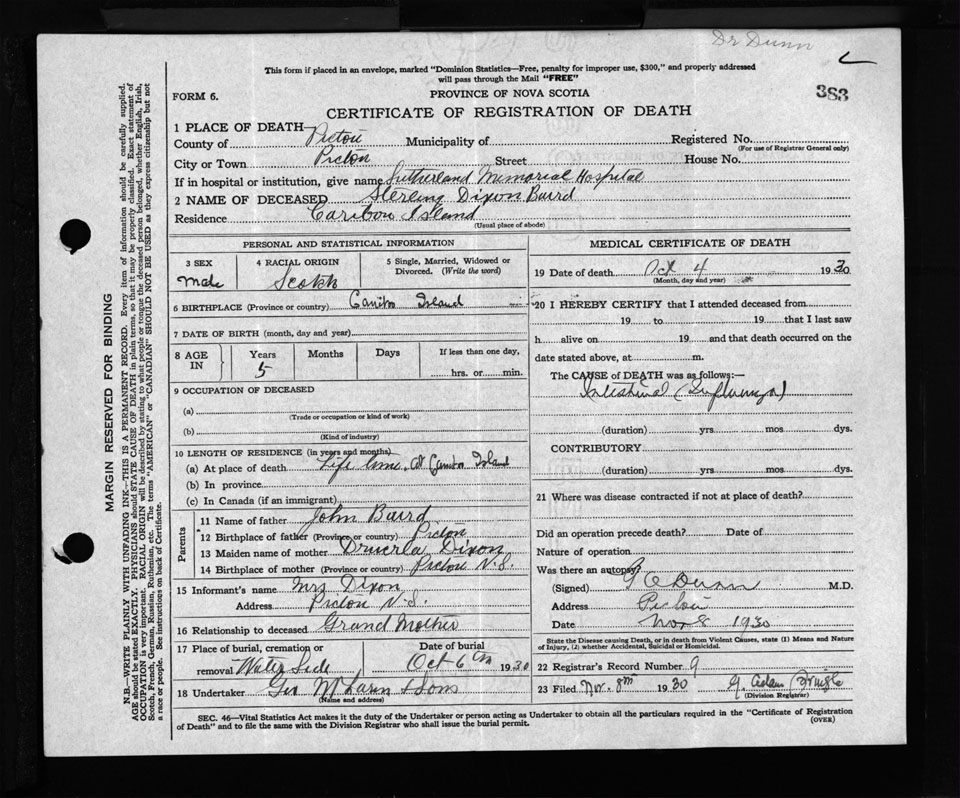 Dr Dunn
This form if placed in an envelope, marked "Dominion Statistics—Free, penalty for improper use, $300," and properly addressed
will pass through the Mail "FREE"
383
FORM 6.
PROVINCE OF NOVA SCOTIA
CERTIFICATE OF REGISTRATION OF DEATH
1 PLACE OF DEATH—
County of Pictou Municipality of Registered No.
(For use of Registrar General only)
City or Town Pictou Street House No.
If in hospital or institution, give name Sutherland Memorial Hospital
2 NAME OF DECEASED Sterling Dixon Baird
Residence Caribou Island
(Usual place of abode)
PERSONAL AND STATISTICAL INFORMATION
3 SEX
male
4 RACIAL ORIGIN
Scotch
5 Single, Married, Widowed or
Divorced. (Write the word)
6 BIRTHPLACE (Province or country) Caribou Island
7 DATE OF BIRTH (month, day and year)
8 AGE
IN
Years
5
Months
Days
If less than one day,
hrs. or min.
9 OCCUPATION OF DECEASED
(a)
(Trade or occupation or kind of work)
(b)
(Kind of industry)
10 LENGTH OF RESIDENCE (in years and months)
(a) At place of death Life time, at Caribou Island
(b) In province
(c) In Canada (if an immigrant)
Parents
11 Name of father John Baird
12 Birthplace of father (Province or country) Pictou
13 Maiden name of mother Dixon
14 Birthplace of mother (Province or country) Pictou N.S.
15 Informant's name Mrs Dixon
Address Pictou N.S.
16 Relationship to deceased Grand Mother
17 Place of burial, cremation or
removal Water Side
Date of burial
Oct 6th 1930
18 Undertaker Geo McLaren & Sons
(Name and address)
MEDICAL CERTIFICATE OF DEATH
19 Date of death Oct 4 1930
(Month, day and year)
20 I HEREBY CERTIFY that I attended deceased from
19 to 19 that I last saw
h alive on 19 and that death occurred on the
date stated above, at m.
The CAUSE of DEATH was as follows:—
Intestinal (Influenza)
(duration) yrs mos dys.
CONTRIBUTORY
(duration) yrs mos dys.
21 Where was disease contracted if not at place of death?
Did an operation precede death? Date of
Nature of operation
Was there an autopsy?
(Signed) G E Dunn M.D.
Address Pictou
Date Nov 8 1930
State the Disease causing Death, or in death from Violent Causes, state (1) Means and Nature
of Injury, (2) whether Accidental, Suicidal or Homicidal.
22 Registrar's Record Number 9
23 Filed Nov. 8th 1930 G.
(Division Registrar)
SEC. 46—Vital Statistics Act makes it the duty of the Undertaker or person acting as Undertaker to obtain all the particulars required in the "Certificate of Registration
of Death" and to file the same with the Division Registrar who shall issue the burial permit.
(OVER)
MARGIN RESERVED FOR BINDING
N.B.—WRITE PLAINLY WITH UNFADING INK—THIS IS A PERMANENT RECORD. Every item of information should be carefully supplied.
AGE should be stated EXACTLY. PHYSICIANS should STATE CAUSE OF DEATH in plain terms, so that it may be properly classified. Exact statement of
OCCUPATION is very important. RACIAL ORIGIN will be described by stating to what people or tongue the deceased person belonged, whether English, Irish,
Scotch, French, German, Russian, Ruthenian, etc. The terms "AMERICAN" or "CANADIAN" SHOULD NOT BE USED as they express citizenship but not
a race or people. See instructions on back of Certificate.